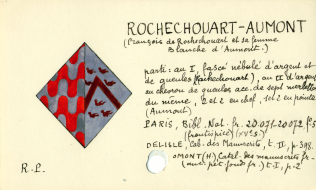 ROCHECHOUART-AUMONT
(François de Rochechouart et sa femme
Blanche d'Aumont.)
parti: au I, fascé nébulé d'argent et
de gueules (Rochechouart), au II d'argent
au chevron de gueules acc. de sept merlettes
du même, 2 et 2 en chef, 1 et 2 en pointe
(Aumont)
PARIS, Bibl. Nat. fr. 20071-20072
(frontispice) (XVe s.)
DELISLE, Cab. des Manuscrits, t. II, p. 398.
OMONT (H) Catal. des manuscrits fr.
R.-L.